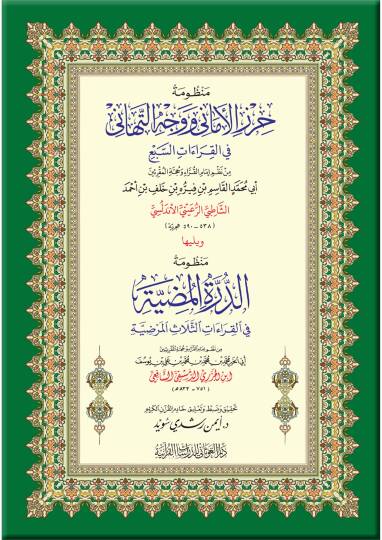 منظومة
حرز الأماني ووجه التهاني
في القراءات السبع
من نظم إمام القراء وحجة المقرئين
أبي محمد القاسم بن فيرُّه بن خلف بن أحمد
الشاطبي الرعيني الأندلسي
(٥٣٨ - ٥٩٠ هجرية)
ويليها
منظومة
الدرة المضية
في القراءات الثلاث المرضية
من نظم إمام القراء وحجة المقرئين
أبي الخير محمد بن محمد بن محمد بن علي بن يوسف
ابن الجزري الدمشقي الشافعي
(٧٥١ - ٨٣٣ هـ)
تحقيق وضبط وتعليق خادم القرآن الكريم
د. أيمن رشدي سويد
دار الغوثاني للدراسات القرآنية